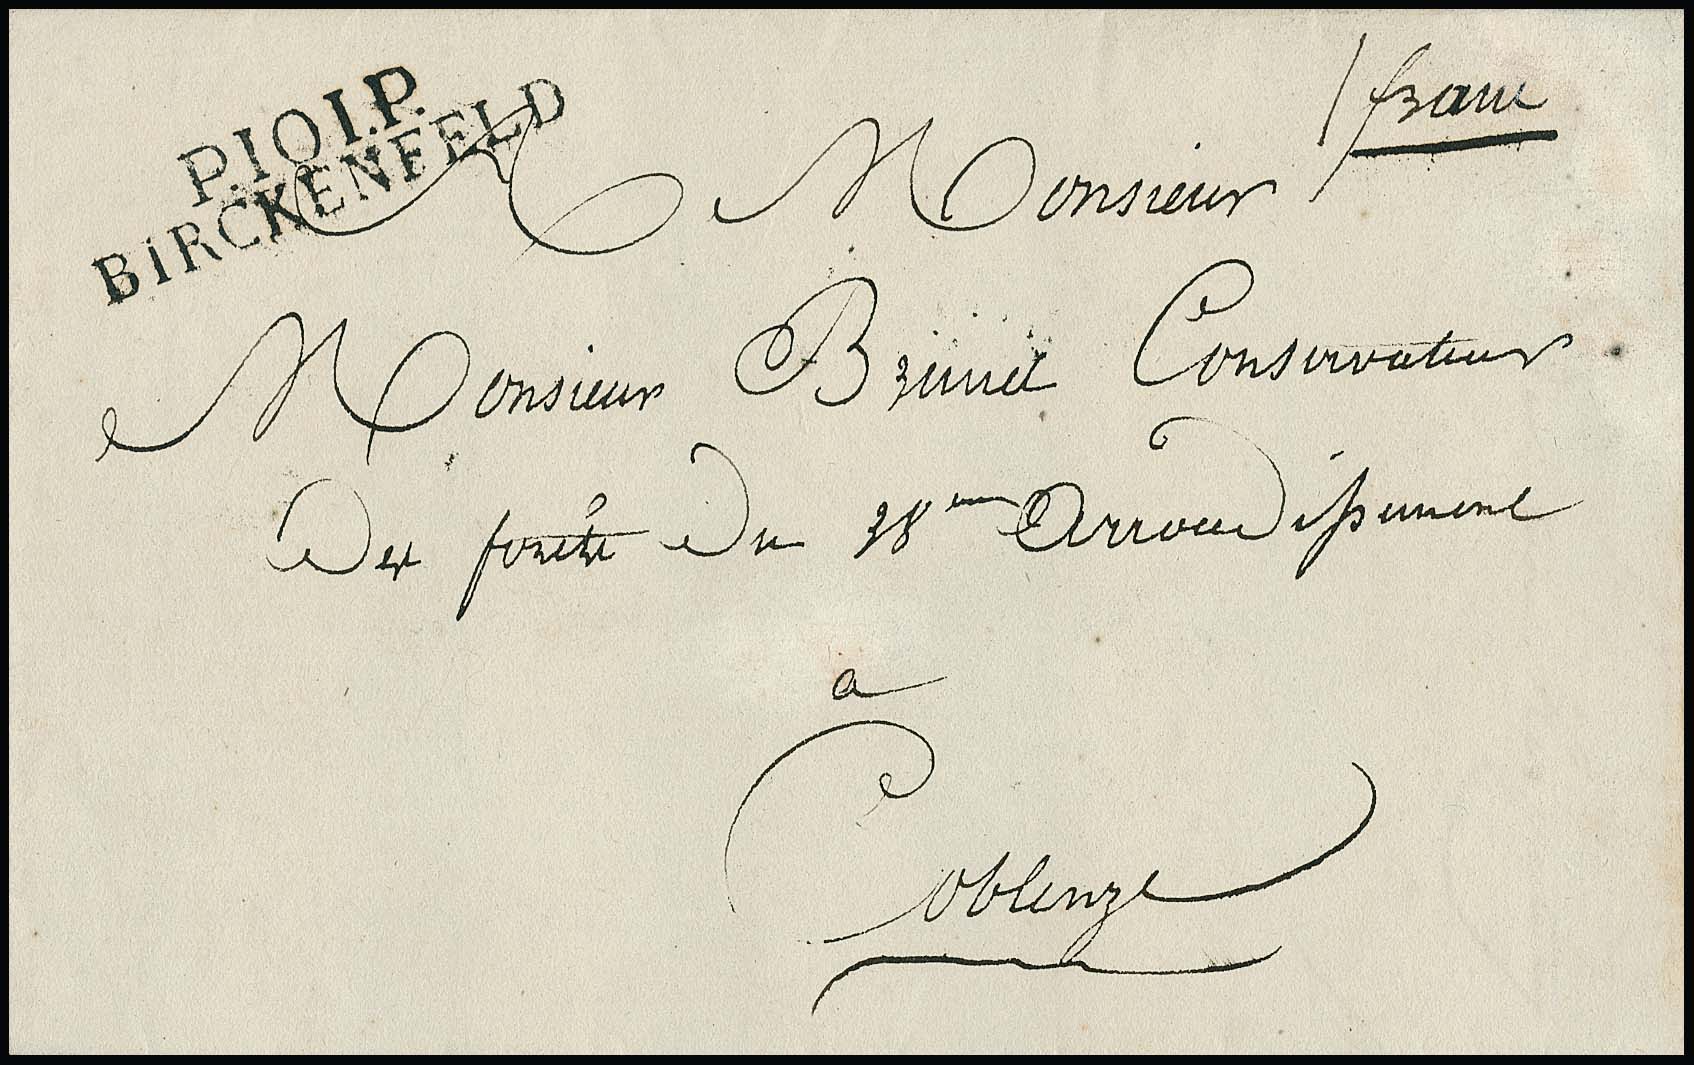 P.101.P.
BIRCKENFELD
franc
A Monsieur
Monsieur Brunel Conservateur
des forêts du 28eme Arrondissement
a
Coblenze